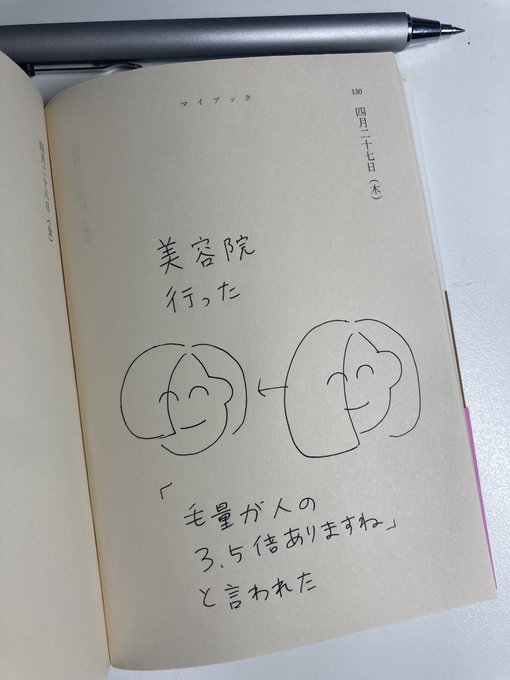 マイブック
130
四月二十七日(木)
美容院
行った
「毛量が人の
3.5倍ありますね」
と言われた